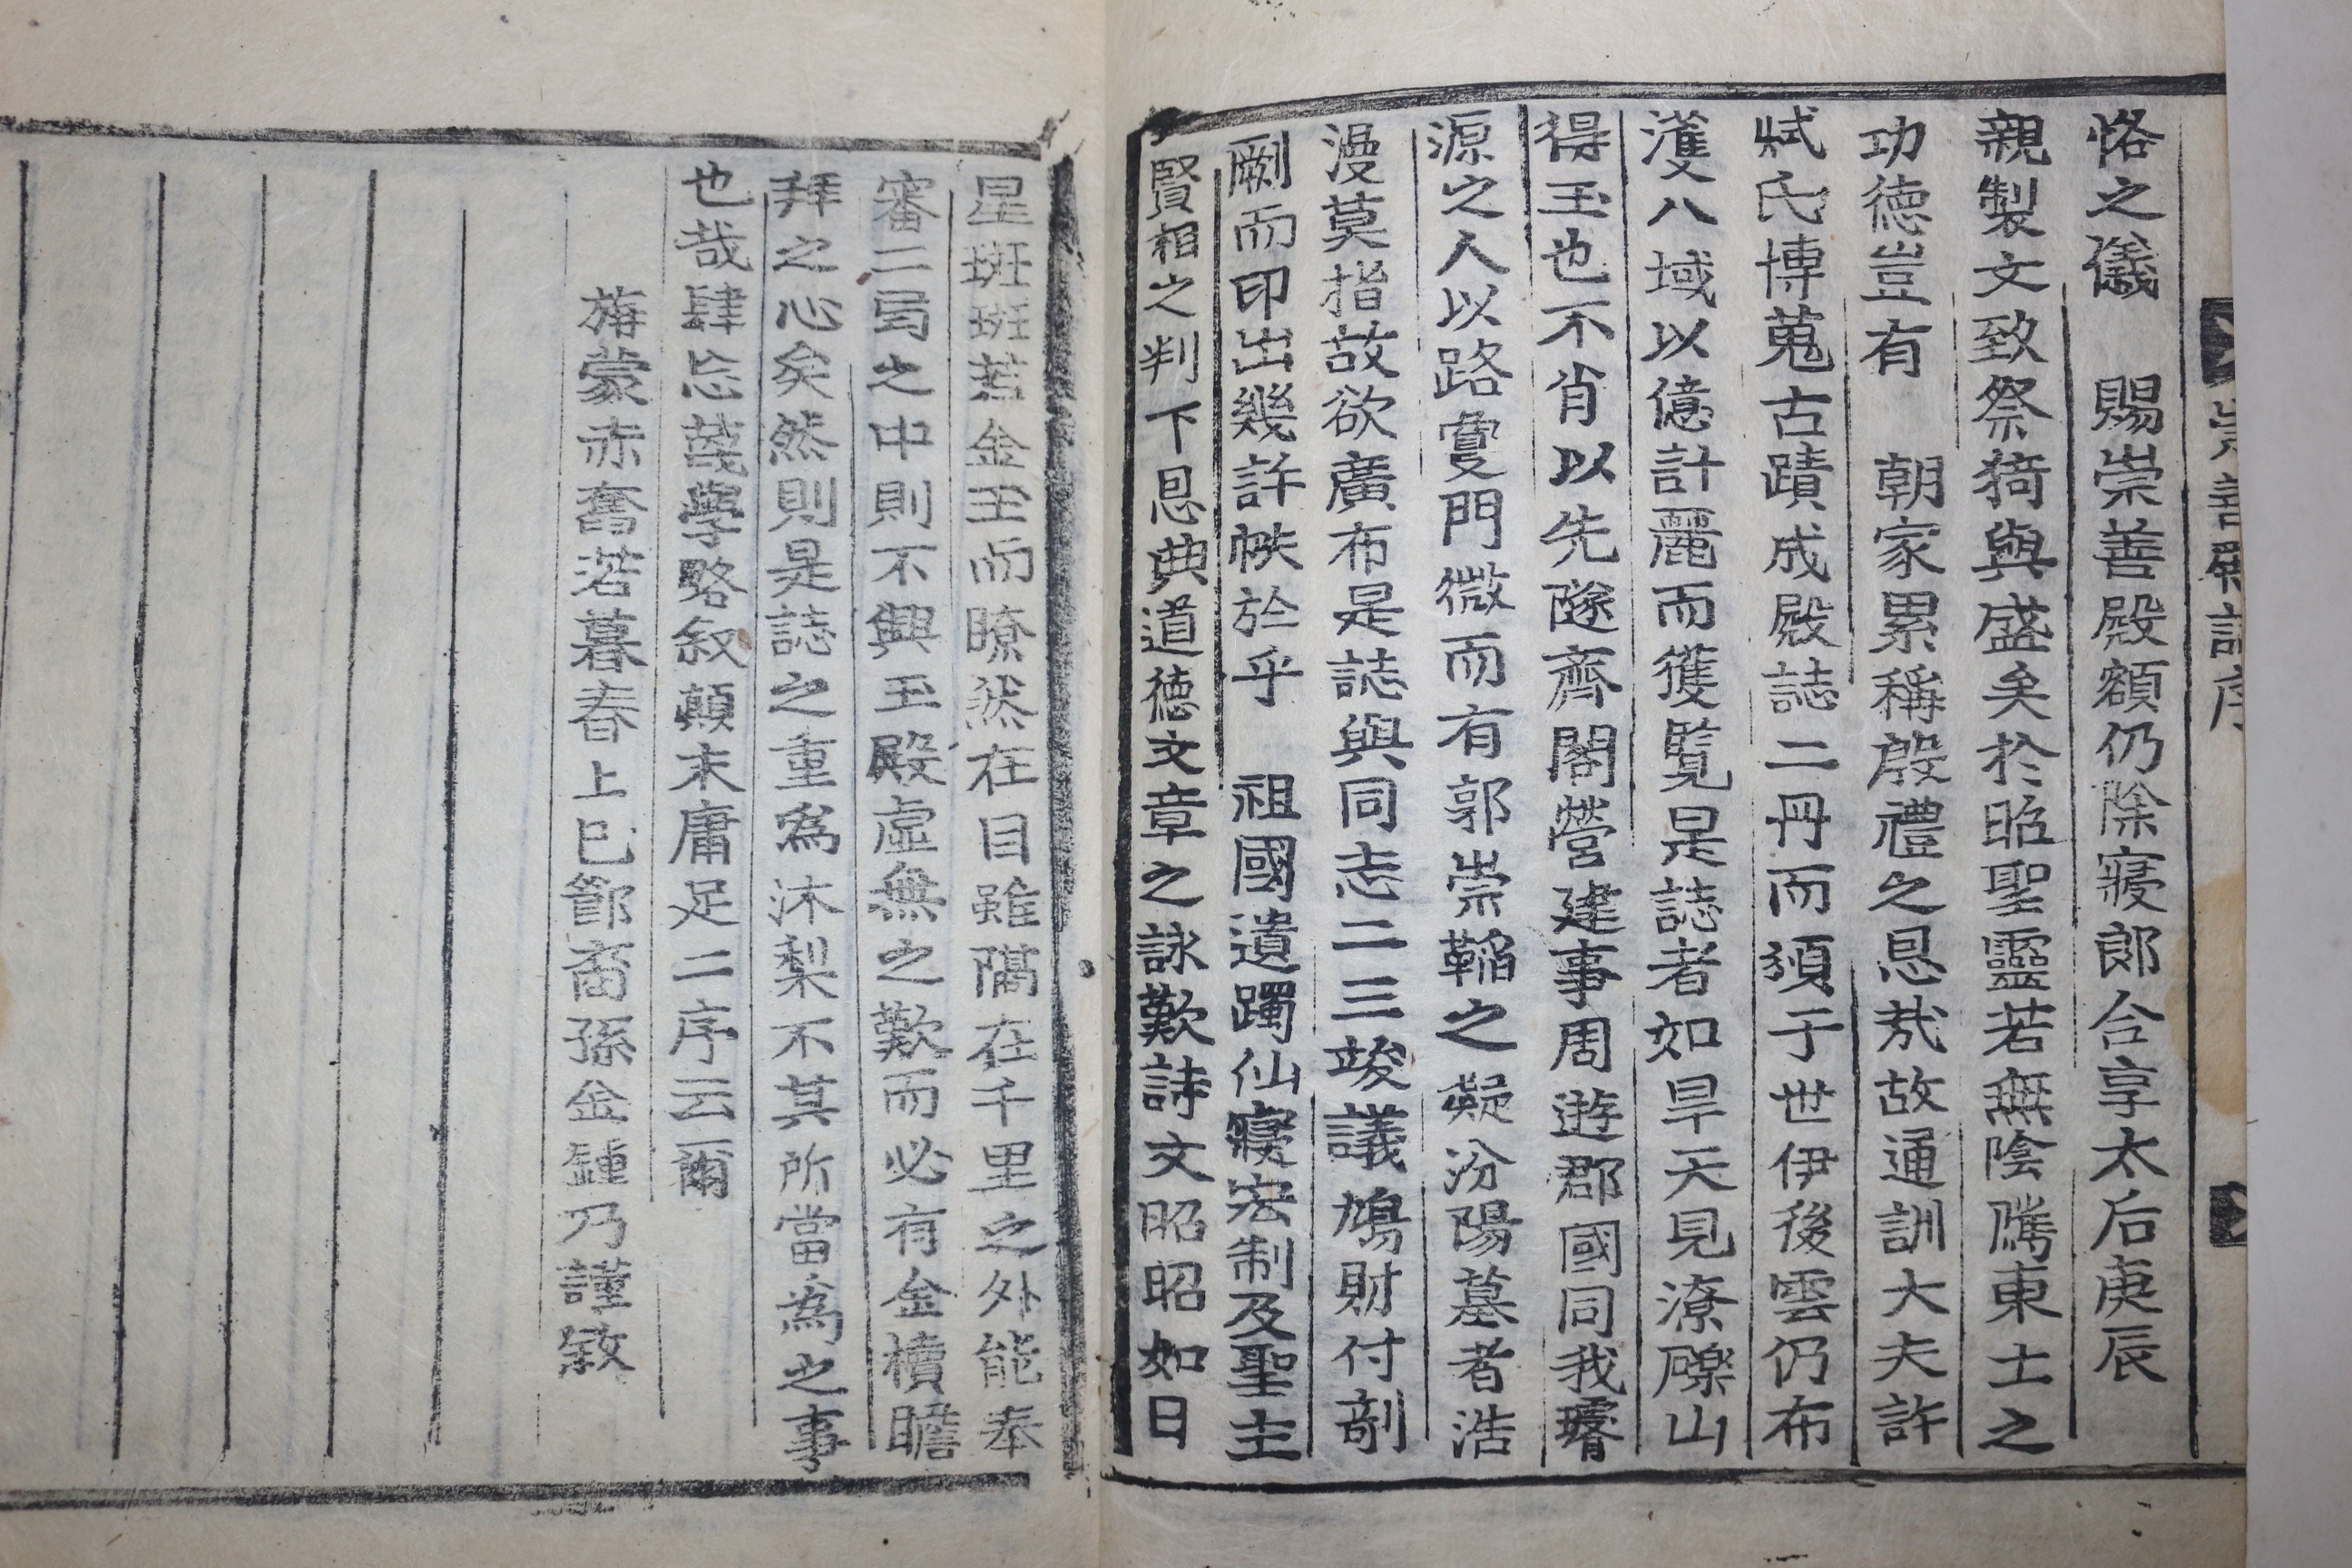 崇善殿誌序
恪之儀 賜崇善殿額仍除寢郎合享太后庚辰
親製文致祭猗與盛矣於昭聖靈若無陰隲東士之
功德豈有 朝家累稱殷禮之恩哉故通訓大夫許
烒氏博蒐古蹟成殿誌二冊而須于世伊後雲仍布
濩八域以億計麗而獲覽是誌者如旱天見潦礫山
得玉也不肖以先隧齋閣營建事周遊郡國同我璿
源之人以路敻門微而有郭崇韜之疑汾陽墓者浩
漫莫指故欲廣布是誌與同志二三竣議鳩財付剞
劂而印出幾許帙於乎 祖國遺躅仙寢宏制及聖主
賢相之判下恩典道德文章之詠歎詩文昭昭如日
星斑斑若金玉而瞭然在目雖隔在千里之外能奉
審二局之中則不興玉殿虛無之歎而必有金櫝瞻
拜之心矣然則是誌之重爲沐梨不其所當爲之事
也哉肆忘蔑學略叙顛末庸足二序云爾
旃蒙赤奮若暮春上巳節裔孫金鍾乃謹敘